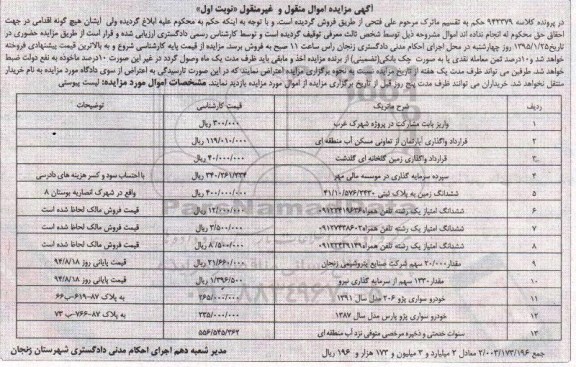 آگهی مزایده اموال منقول و غیرمنقول «نوبت اول»
در پرونده کلاسه ۹۴۲۳۷۹ حکم به تقسیم ماترک مرحوم علی فتحی از طریق فروش گردیده است. و با توجه به اینکه حکم به محکوم علیه ابلاغ گردیده ولی آیشان هیچ گونه اقدامی در جهت
احقاق حق محکوم له انجام نداده اند اموال مشروحه ذیل توسط شخص ثالث معرفی توقیف گردیده است و توسط کارشناس رسمی دادگستری ارزیابی شده و قرار است از طریق مزایده حضوری در
تاریخ ۱۳۹۵/۱/۲۵ روز چهارشنبه در محل اجرای احکام مدنی دادگستری زنجان راس ساعت ۱۱ صبح به فروش برسد. مزایده از قیمت پایه کارشناسی شروع و به بالاترین قیمت پیشنهادی فروخته
خواهد شد و ۱۰درصد ثمن معامله نقدی یا به صورت چک بانکی(تضمینی) از برنده مزایده اخذ و مابقی باید ظرف مدت یک ماه وصول گردد در غیر این صورت ۱۰درصد ماخوذه به نفع دولت ضبط
خواهد شد. طرفین می توانند ظرف مدت یک هفته از تاریخ مزایده نسبت به نحوه برگزاری مزایده اعتراض نمایند که در این صورت تارسیدگی به اعتراض از سوی دادگاه مورد مزایده به نام خریدار
منتقل نخواهد شد. خریداران می توانند ظرف مدت پنج روز قبل از تاریخ برگزاری مزایده از اموال مورد مزایده بازدید نمایند. مشخصات اموال مورد مزایده: لیست پیوستی
ردیف شرح ماتریک قیمت کارشناسی توضیحات
۱ واریز بابت مشارکت در پروژه شهرک غرب ۳۰۰/۰۰۰ ریال
۲ قرارداد واگذاری آپارتمان از تعاونی مسکن آب منطقه ای ۱۱۹/۰۱۰/۰۰۰ ریال
۳ قرارداد واگذاری زمین گلخانه ای گلدشت ۴۰/۰۰۰/۰۰۰ ریال
۴ سپرده سرمایه گذاری در موسسه مالی مهر ۳۴۰/۲۶۱/۲۳۴ ریال با احتساب سود و کسر هزینه های دادرسی
۵ ششدانگ زمین به پلاک ثبتی ۴۱/۱۰/۵۷۶/۲۴۳۰ ۴۰۰/۰۰۰/۰۰۰ ریال واقع در شهرک انصاریه بوستان ۸
۶ ششدانگ امتیاز یک رشته تلفن همراه۰۹۱۲۲۴۱۹۶۳۶ ۱۲/۰۰۰/۰۰۰ ریال قیمت فروش مالک لحاظ شده است
۷ ششدانگ امتیاز یک رشته تلفن همراه۰۹۱۲۷۴۳۸۶۰۲ ۳/۵۰۰/۰۰۰ ریال قیمت فروش مالک لحاظ شده است
۸ ششدانگ امتیاز یک رشته تلفن همراه ۸/۵۰۰/۰۰۰ ریال قیمت فروش مالک لحاظ شده است
۹ مقدار۲۰/۰۰۰ سهم شرکت صنایع پتروشیمی زنجان ۲۱/۶۶۰/۰۰۰ ریال قیمت پایانی روز ۹۴/۸/۱۸
۱۰ مقدار۱۳۳۰ سهم از سرمایه گذاری نیرو ۱/۳۹۶/۵۰۰ ریال قیمت پایانی روز ۹۴/۸/۱۸
۱۱ خودرو سواری پژو ۲۰۶ مدل سال ۱۳۹۱ ۲۶۵/۰۰۰/۰۰۰ به پلاک ۸۷-۶۱۹ب۶۶
۱۲ خودرو سواری پژو پارس مدل سال ۱۳۸۷ ۲۳۵/۰۰۰/۰۰۰ به پلاک ۸۷-۷۶۶ب ۷۳
۱۳ سنوات خدمتی و ذخیره مرخصی متوفی نزد آب منطقه ای ۵۵۶/۵۴۵/۴۶۲
جمع ۲/۰۰۳/۱۷۳/۱۹۶ معادل ۲ میلیارد و ۳ میلیون و ۱۷۳ هزار و ۱۹۶ ریال
مدیر شعبه دهم اجرای احکام مدنی دادگستری شهرستان زنجان
ParsNamadData